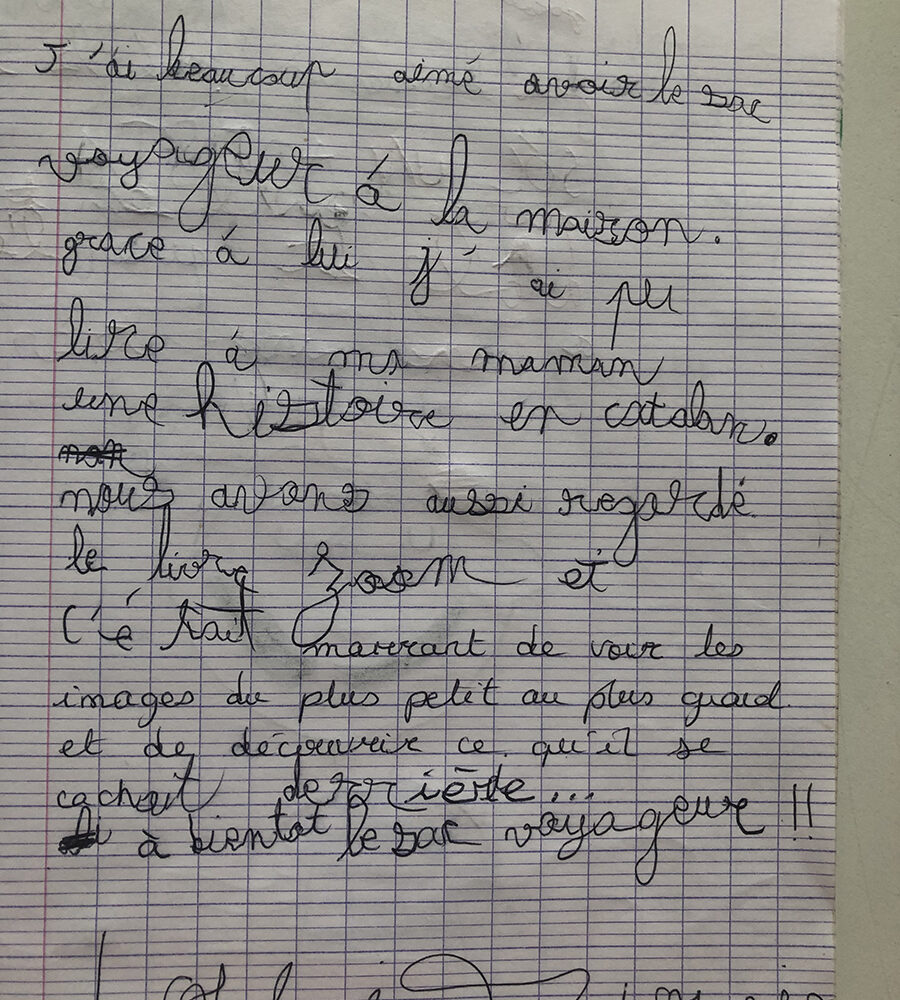 J'ai beaucoup aimé avoir le sac
voyageur à la maison.
grace à lui j'ai pu
lire à ma maman
une histoire en catalan.
nous avons aussi regardé
le livre zoom et
C'é tait marrant de voir les
images du plus petit au plus grand.
et de découvrir ce qu'il se
cachait derrière...
à bientot le sac voyageur !!